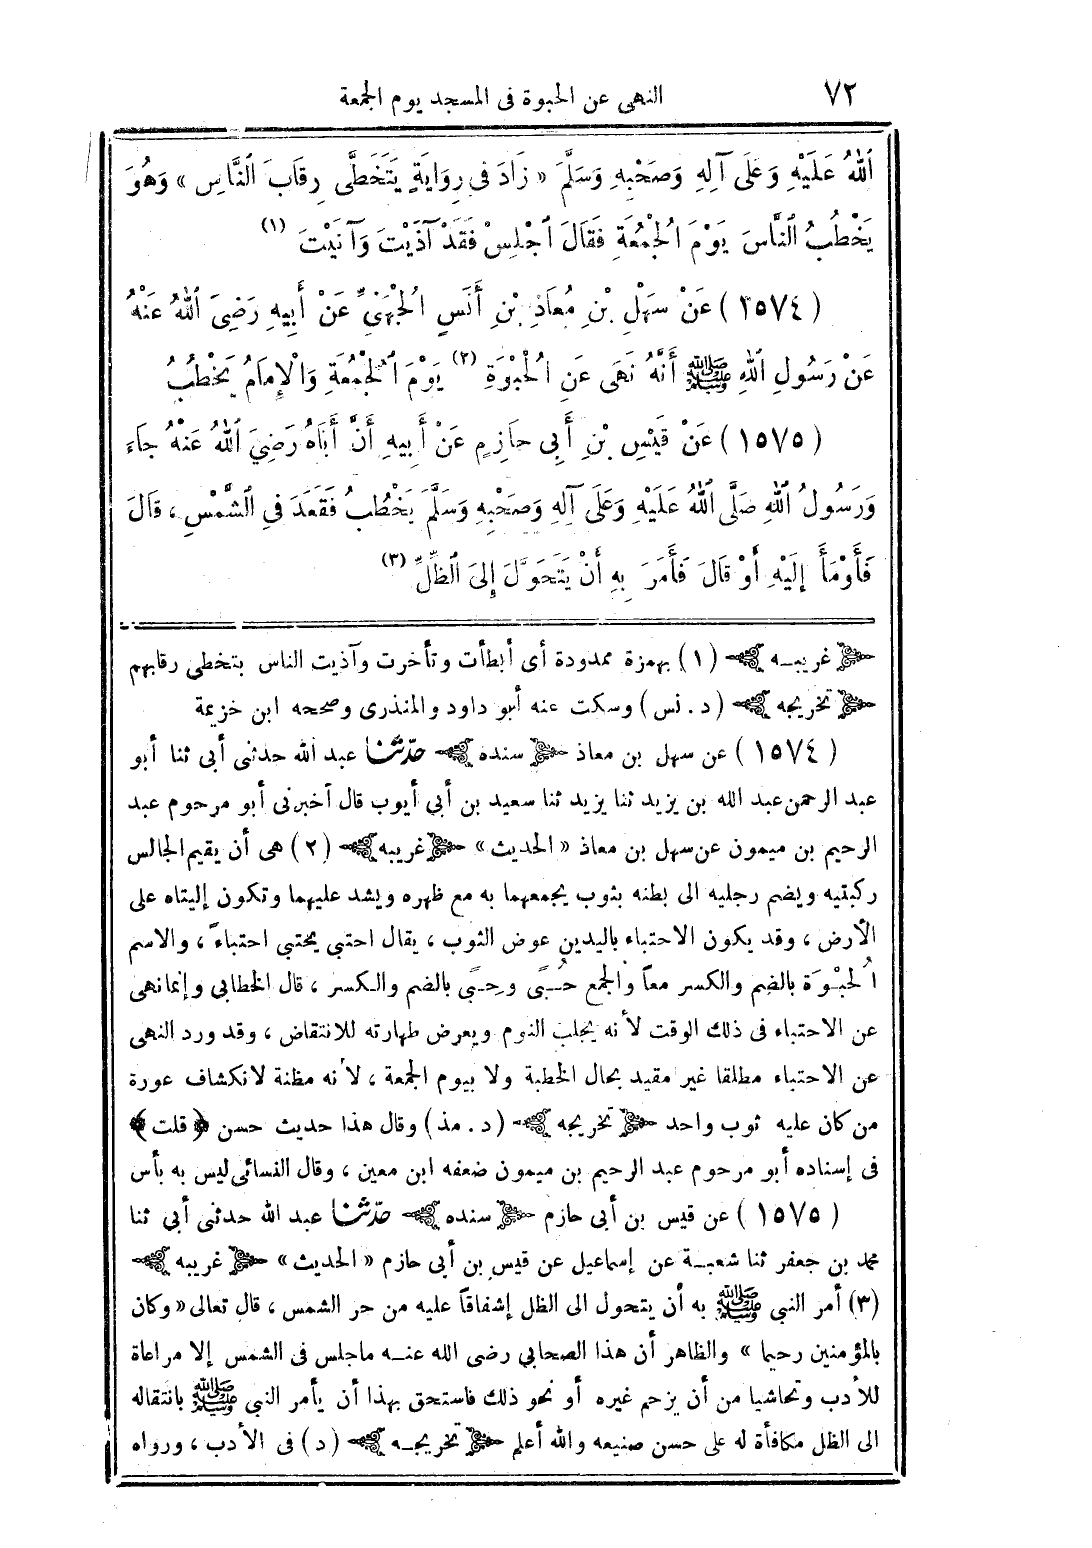 ٧٢ النهى عن الحبوة فى المسجد يوم الجمعة
ٱللهُ عَلَيْهِ وَعَلَى آلِهِ وَصَحْبِهِ وَسَلَّمَ « زَادَ فِى رِوَايَةٍ يَتَخَطَّى رِقَابَ ٱلنَّاسِ » وَهُوَ
يَخْطُبُ ٱلنَّاسَ يَوْمَ ٱلْجُمُعَةِ فَقَالَ ٱجْلِسْ فَقَدْ آذَيْتَ وَآنَيْتَ (١)
(١٥٧٤) عَنْ سَهْلِ بْنِ مُعَاذِ بْنِ أَنَسٍ ٱلْجُهَنِىِّ عَنْ أَبِيهِ رَضِىَ ٱللهُ عَنْهُ
عَنْ رَسُولِ ٱللهِ ﷺ أَنَّهُ نَهَى عَنِ ٱلْحُبْوَةِ (٢) يَوْمَ ٱلْجُمُعَةِ وَٱلْإِمَامُ يَخْطُبُ
(١٥٧٥) عَنْ قَيْسِ بْنِ أَبِى حَازِمٍ عَنْ أَبِيهِ أَنَّ أَبَاهُ رَضِىَ ٱللهُ عَنْهُ جَاءَ
وَرَسُولُ ٱللهِ صَلَّى ٱللهُ عَلَيْهِ وَعَلَى آلِهِ وَصَحْبِهِ وَسَلَّمَ يَخْطُبُ فَقَعَدَ فِى ٱلشَّمْسِ ، قَالَ
فَأَوْمَأَ إِلَيْهِ أَوْ قَالَ فَأَمَرَ بِهِ أَنْ يَتَحَوَّلَ إِلَى ٱلظِّلِّ (٣)
﴿ غريبه ﴾ (١) بهمزة ممدودة أى أبطأت وتأخرت وآذيت الناس بتخطى رقابهم
﴿ تخريجه ﴾ (د . نس) وسكت عنه أبو داود والمنذرى وصححه ابن خزيمة
(١٥٧٤) عن سهل بن معاذ ﴿ سنده ﴾ حدّثنا عبد الله حدثنى أبى ثنا أبو
عبد الرحمن عبد الله بن يزيد ثنا يزيد ثنا سعيد بن أبى أيوب قال أخبرنى أبو مرحوم عبد
الرحيم بن ميمون عن سهل بن معاذ « الحديث » ﴿ غريبه ﴾ (٢) هى أن يقيم الجالس
ركبتيه ويضم رجليه الى بطنه بثوب يجمعهما به مع ظهره ويشد عليهما وتكون إليتاه على
الأرض ، وقد يكون الاحتباء باليدين عوض الثوب ، يقال احتبى يحتبى احتباءً ، والاسم
الحُبْوَة بالضم والكسر معاً والجمع حُبًى وحِبًى بالضم والكسر ، قال الخطابى وإنما نهى
عن الاحتباء فى ذلك الوقت لأنه يجلب النوم ويعرض طهارته للانتقاض ، وقد ورد النهى
عن الاحتباء مطلقا غير مقيد بحال الخطبة ولا بيوم الجمعة ، لأنه مظنة لانكشاف عورة
من كان عليه ثوب واحد ﴿ تخريجه ﴾ (د . مذ) وقال هذا حديث حسن ﴿ قلت ﴾
فى إسناده أبو مرحوم عبد الرحيم بن ميمون ضعفه ابن معين ، وقال النسائى ليس به بأس
(١٥٧٥) عن قيس بن أبى حازم ﴿ سنده ﴾ حدّثنا عبد الله حدثنى أبى ثنا
محمد بن جعفر ثنا شعبة عن إسماعيل عن قيس بن أبى حازم « الحديث » ﴿ غريبه ﴾
(٣) أمر النبى ﷺ به أن يتحول الى الظل إشفاقاً عليه من حر الشمس ، قال تعالى « وكان
بالمؤمنين رحيما » والظاهر أن هذا الصحابى رضى الله عنه ماجلس فى الشمس إلا مراعاة
للأدب وتحاشيا من أن يزحم غيره أو نحو ذلك فاستحق بهذا أن يأمر النبى ﷺ بانتقاله
الى الظل مكافأة له على حسن صنيعه والله أعلم ﴿ تخريجه ﴾ (د) فى الأدب ، ورواه